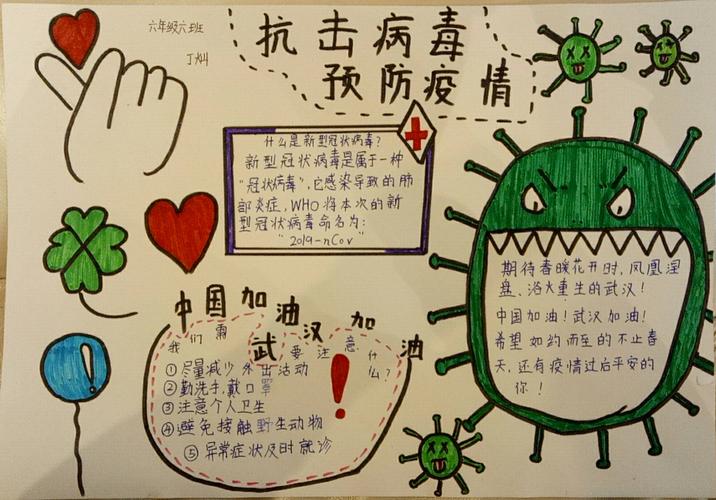 六年级六班
丁灿
抗击病毒
预防疫情
什么是新型冠状病毒?
新型冠状病毒是属于一种
“冠状病毒”,它感染导致的肺
部炎症,WHO将本次的新
型冠状病毒命名为:
“2019-nCov”
中国加油
武汉加油
我们需要注意什么?
①尽量减少外出活动
②勤洗手,戴口罩
③注意个人卫生
④避免接触野生动物
⑤异常症状及时就诊
期待春暖花开时,凤凰涅
盘、浴火重生的武汉!
中国加油!武汉加油!
希望如约而至的不止春
天,还有疫情过后平安的
你!